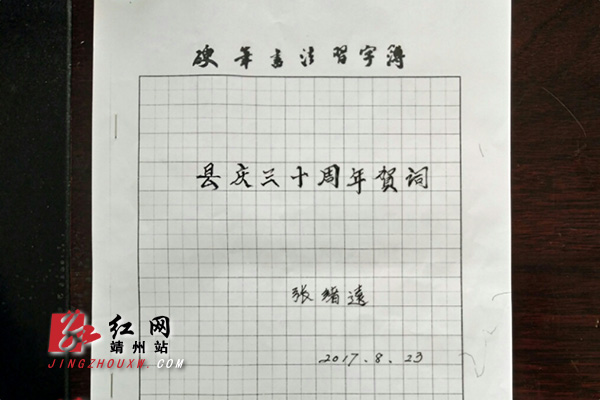 硬笔书法習字簿
县庆三十周年贺词
张绪遠
2017.8.23
红网
靖州站
JINGZHOUXW.COM